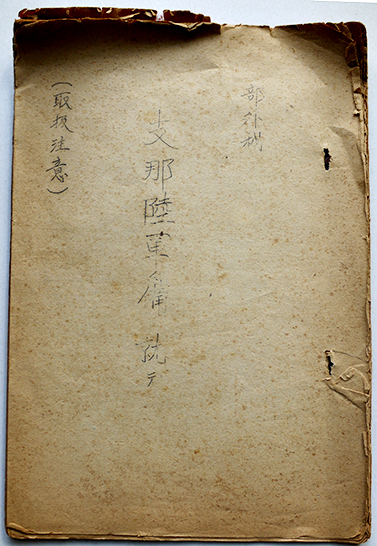 部外秘
支那陸軍備就テ
(取扱注意)